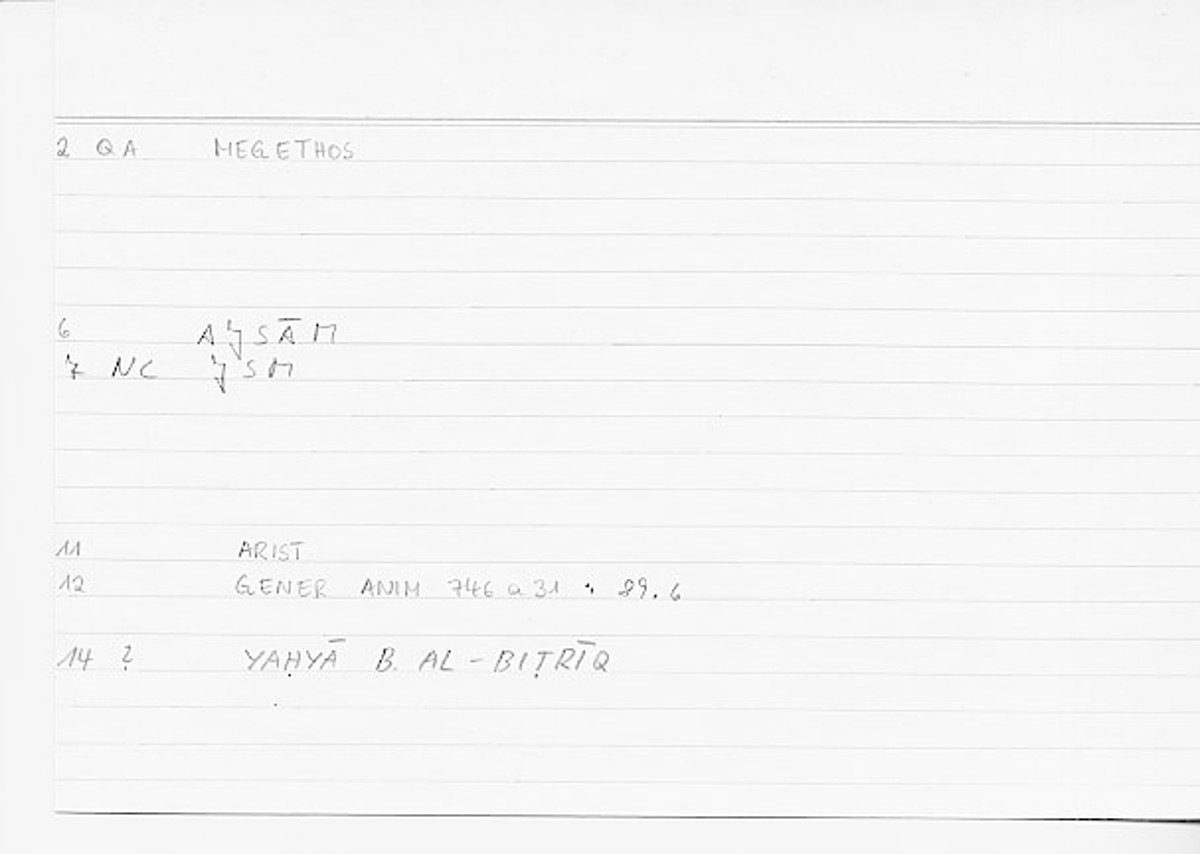 2 QA MEGETHOS
6 AǦSĀM
7 NC ǦSM
11 ARIST
12 GENER ANIM 746 a 31 : 89.6
14 ? YAḤYĀ B. AL-BIṬRĪQ